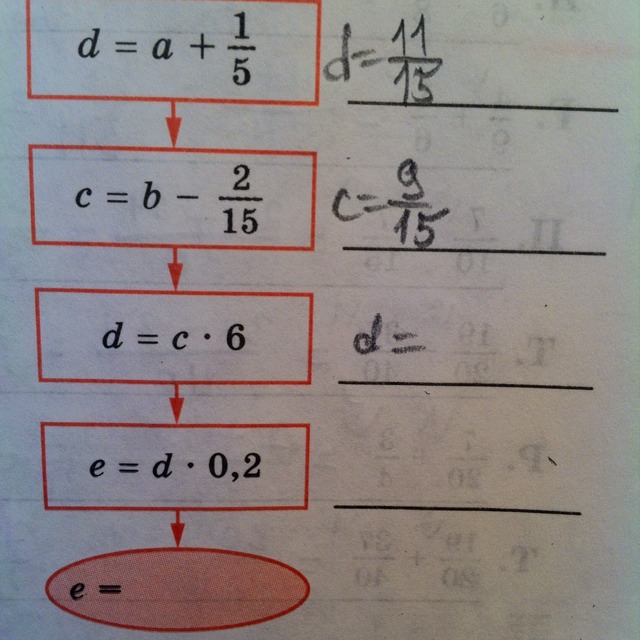 d = a + 1/5
d = 11/15
c = b − 2/15
c = 9/15
d = c · 6
d =
e = d · 0,2
e =